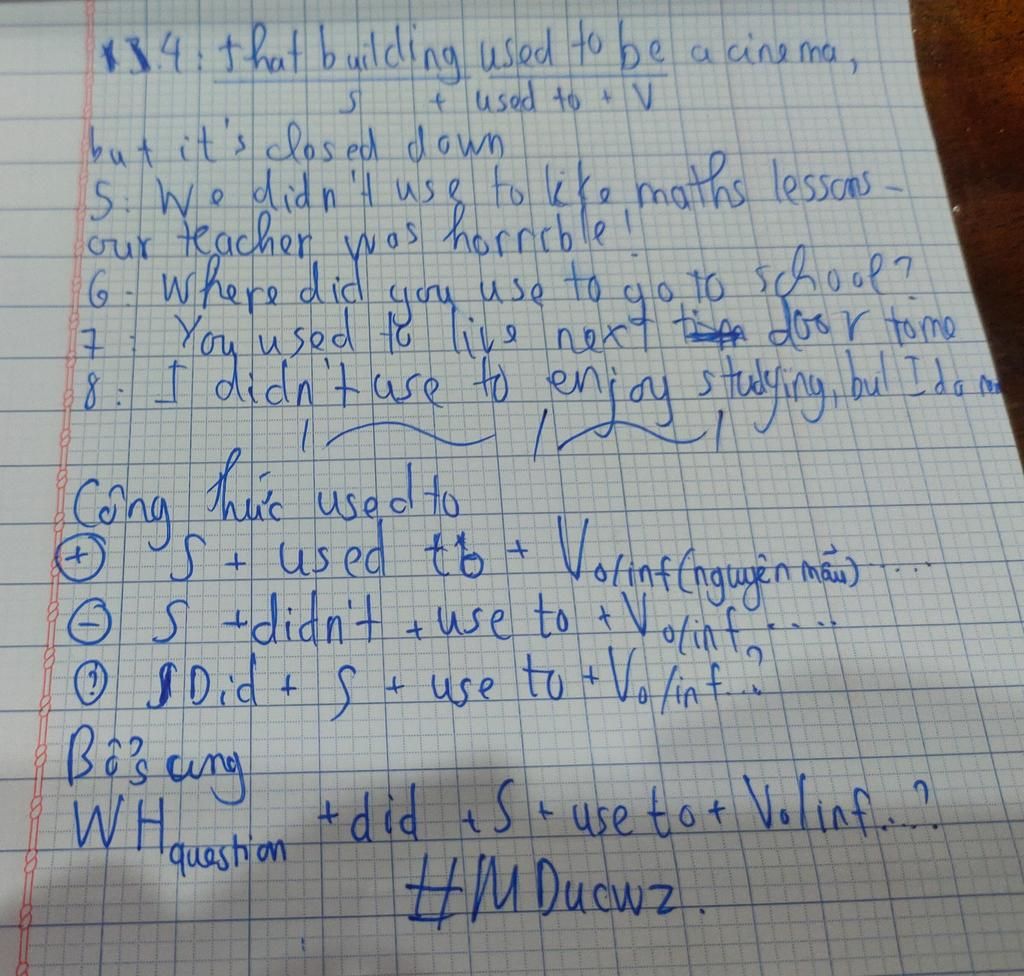 4: that building used to be a cinema,
S + used to + V
but it's closed down
5: We didn't use to like maths lessons -
our teacher was horrible!
6: Where did you use to go to school?
7: You used to live next door to me
8: I didn't use to enjoy studying, but I do
Công thức used to
(+) S + used to + Vo/inf (nguyên mẫu) ....
(-) S + didn't + use to + Vo/inf ....
(?) Did + S + use to + Vo/inf...?
Bổ sung
WH question + did + S + use to + Vo/inf....?
#MDucwz.